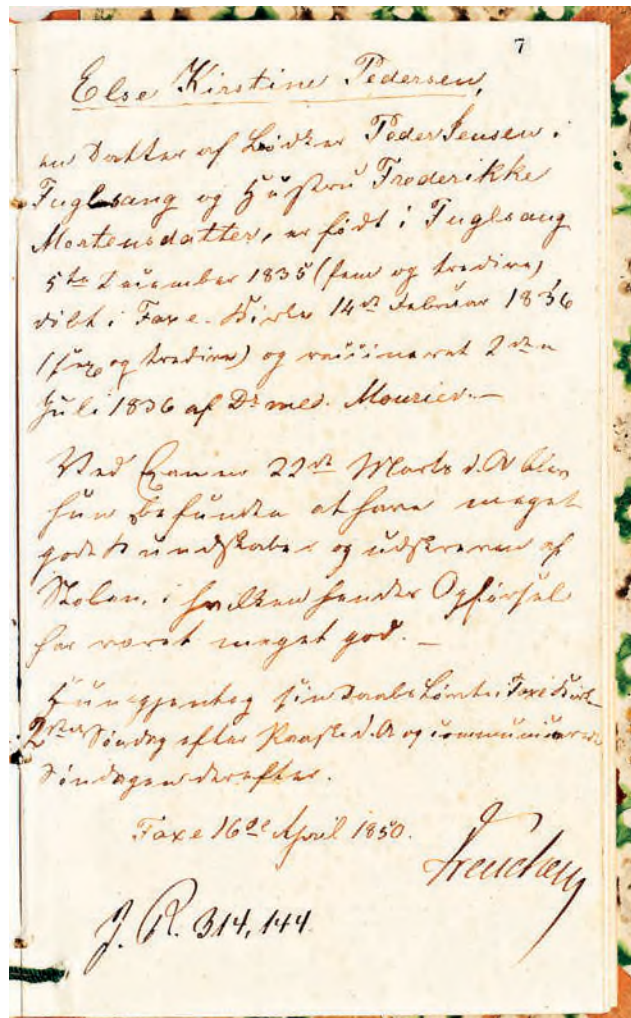 7
Else Kirstine Pedersen,
en Datter af Bødker Peder Jensen i
Fuglsang og Hustru Frederikke
Mortensdatter, er født i Fuglsang
5te December 1835 (fem og tredive)
døbt i Faxe Kirke 14de Februar 1836
(sex og tredive) og vaccineret 2den
Juli 1836 af Dr med. Mourier. —
Ved Examen 22de Marts d. A blev
hun befunden at have meget
gode Kundskaber og udskreven af
Skolen, i hvilken hendes Opførsel
har været meget god. —
Hun gjentog sin Daabs Løfte i Faxe Kirke
2den Søndag efter Paaske d. A og communicerede
Søndagen derefter.
Faxe 16de April 1850.
J. R. 314, 144